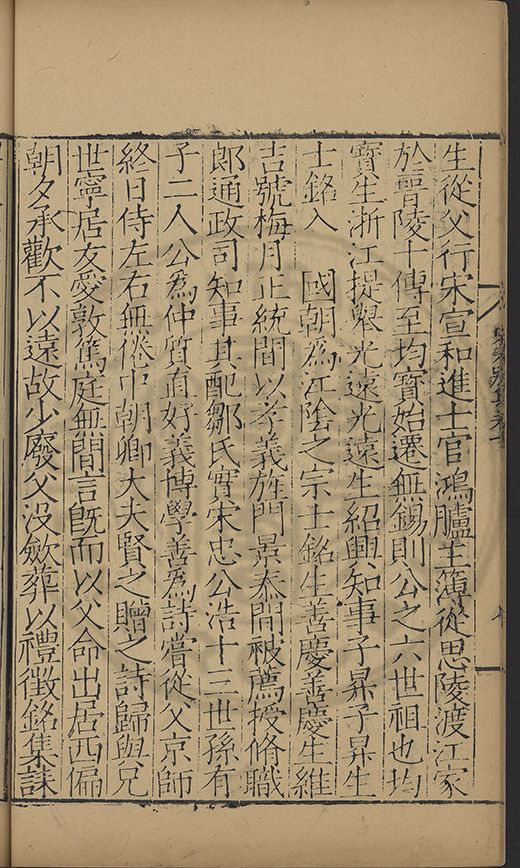 生從父行宋宣和進士官鴻臚主簿從思陵渡江家
於晉陵十傳至均實始遷無錫則公之六世祖也均
實生浙江提舉光遠光遠生紹興知事子昇子昇生
士銘入　國朝為江陰之宗士銘生善慶善慶生維
吉號梅月正統間以孝義旌門景泰間被薦授脩職
郎通政司知事其配鄒氏實宋忠公浩十三世孫有
子二人公為仲質直好義博學善為詩嘗從父京師
終日侍左右無倦巾朝卿大夫賢之贈之詩歸與兄
世寧居友愛敦篤庭無間言既而以父命出居西偏
朝夕承歡不以遠故少廢父没斂葬以禮徵銘集誄